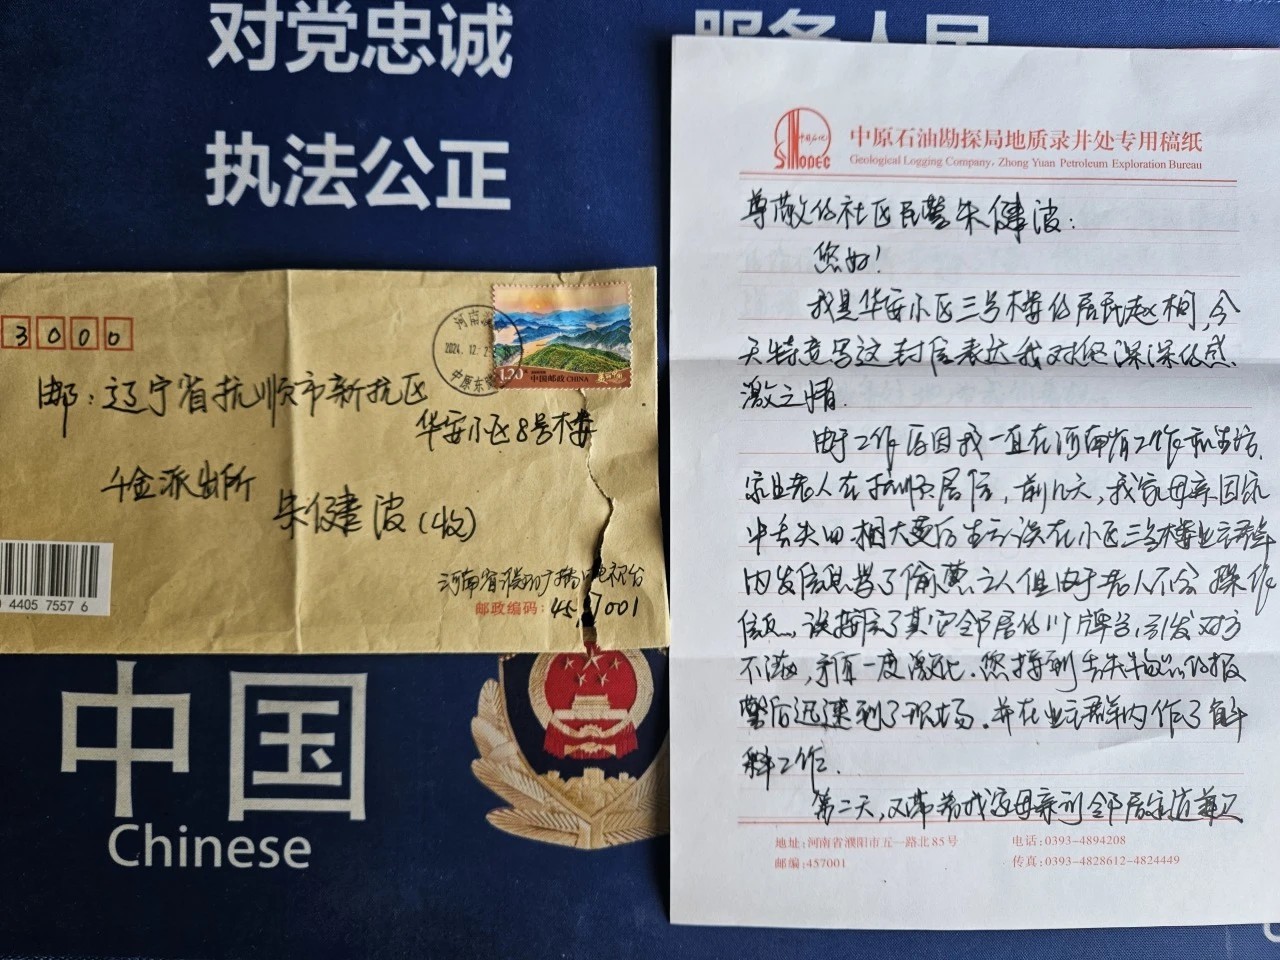 对党忠诚
服务人民
执法公正
中国
Chinese
3000
河南
2024.12.2
中原东
1.20
中国邮政 CHINA
邮：辽宁省抚顺市新抚区
华安小区8号楼
千金派出所
朱健波（收）
河南省濮阳广播电视台
邮政编码：457001
4405 7557 6
中国石化
SINOPEC
中原石油勘探局地质录井处专用稿纸
Geological Logging Company, Zhong Yuan Petroleum Exploration Bureau
尊敬的社区民警朱健波：
您好！
我是华安小区三号楼的居民赵桐，今
天特意写这封信表达我对您深深的感
激之情.
由于工作原因我一直在河南省工作和生活，
家里老人在抚顺居住，前几天，我家母亲因家
中丢失
在小区三号楼业主群
内发信息骂了偷
之人但由于老人不会操作
信息，误
了其它邻居的门牌号，引发对方
不满，矛盾一度激化.您接到丢失
的报
警后迅速到了现场.并在业主群内作了解
释工作.
第二天，又带着我家母亲到邻居家道歉又
地址：河南省濮阳市五一路北85号
电话：0393-4894208
邮编：457001
传真：0393-4828612-4824449